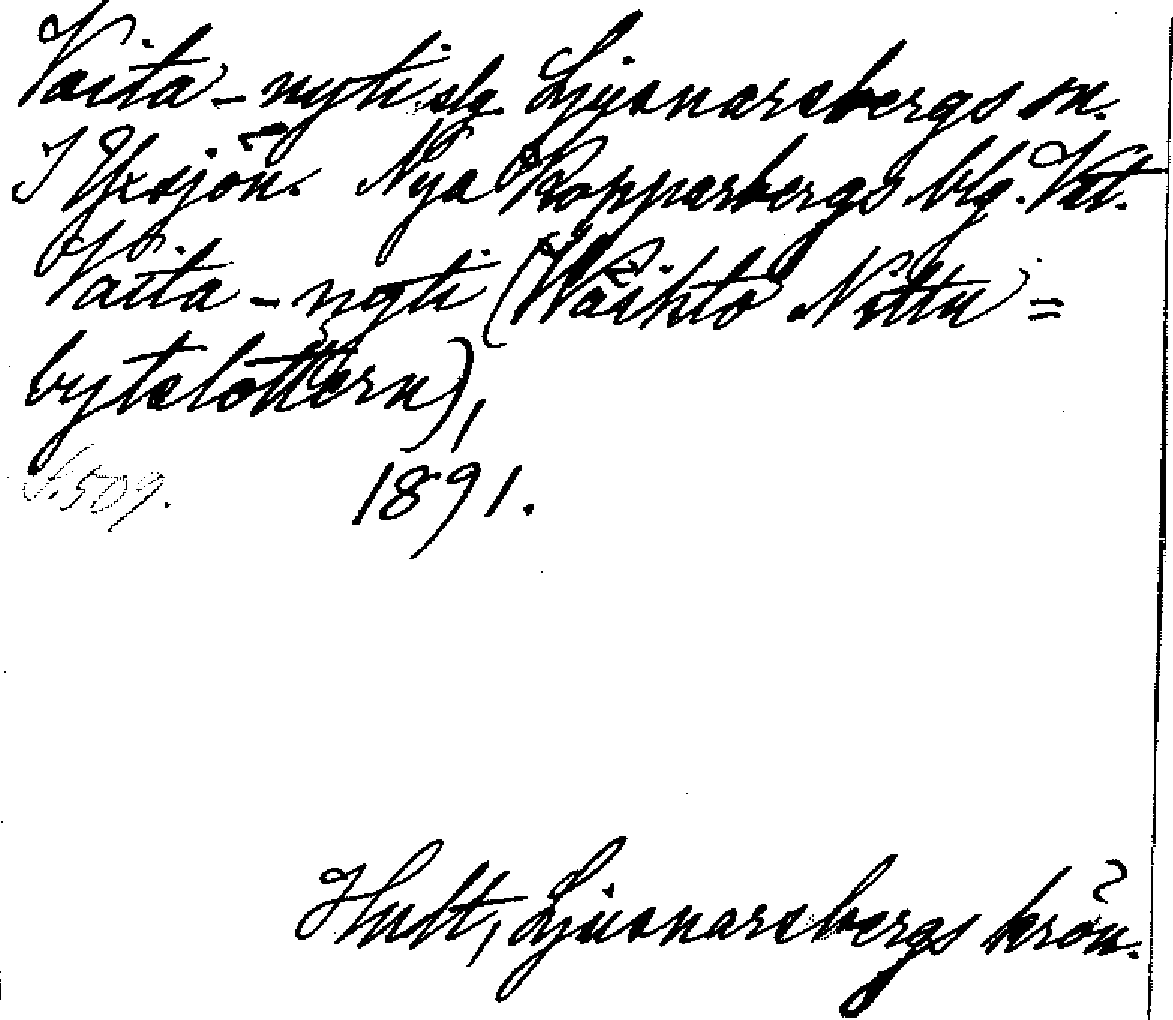 Vaita - nyti slg Ljusnarsbergs sn.
I Yxsjön. Nya Kopparbergs blg. Vst.
Vaita - nyti (Waihto Nittu =
bytslåttern),
S. 509. 1891.
Hult, Ljusnarsbergs krön.